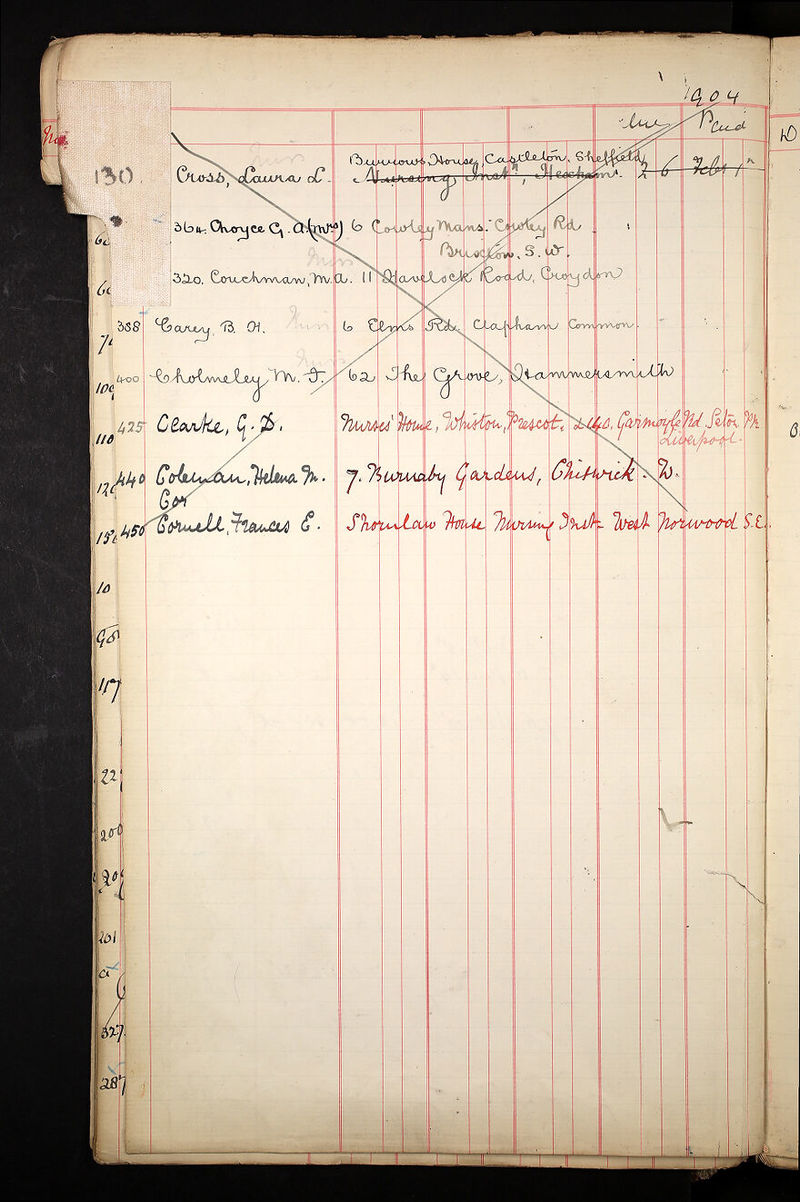 1904
Due Paid
130 Cross, Laura L. Burrows House, Castleton, Sheffield
Nursing Instn, Hexham. 2 6 Feb 1st
364. Choyce G. A. (Mrs) 6 Cowley Mans: Cowley Rd
Miss Brixton, S. W.
320. Couchman, M. A. 11 Havelock Road, Croydon
388 Carey, B. H. Miss 6 Elms Rd. Clapham Common.
Miss
400 Cholmeley M. F. 62 The Grove, Hammersmith
425 Clarke, G. D. Nurses' Home, Whiston, Prescot. 140. Garmoyle Rd Sefton Pk
Liverpool.
440 Coleman, Helena M. 7. Burnaby Gardens, Chiswick. W.
Cor
450 Cornell, Frances E. Shornlaw House Nursing Inst- West Norwood S.E.
10
117
22
200
20
201
327
287